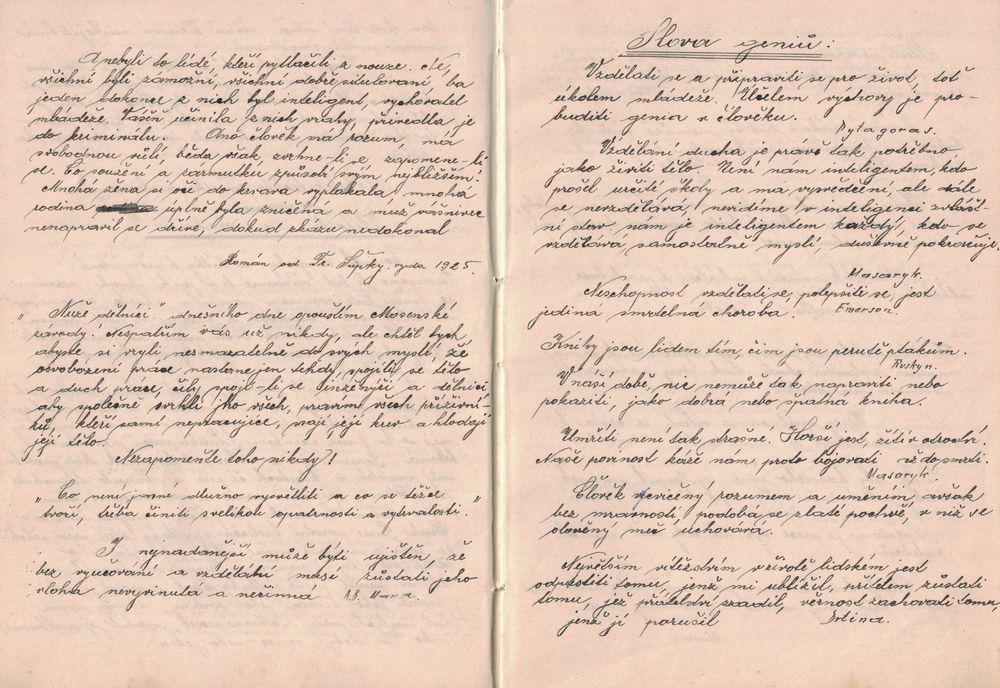 A nebyli to lidé, kteří pytlačili z nouze. Né,
všichni byli zámožní, všichni dobře situlovaní, ba
jeden dokonce z nich byl inteligent, vychovatel
mládeže. Vášeň učinila z nich vrahy, přivedla je
do kriminálu. Ano člověk má rozum, má
svobodnou vůli, běda však zvrhne-li se, zapomene-li
se. Co soužení a zármutku způsobí svým nejbližším!
Mnohá žena si oči do krvava vyplakala, mnohá
rodina úplně byla zničená a muž vášnivec
nenapravil se dříve, dokud zkázu nedokonal
Román od Fr. Supky. vyda 1925.
„Muži dělníci" dnešního dne opouštím Mosenské
závody! Nespatřím vás už nikdy, ale chtěl bych,
abyste si vryli nesmazatelně do svých myslí, že
osvobození práce nastane jen tehdy, spojíte se tělo
a duch práce, čili spojí-li se inženýři a dělníci
aby společně svrhli jho všech, pravím všech příživní-
ků, kteří sami nepracujíce, ssají její krev a hlodají
její tělo.
Nezapomeňte toho nikdy!
„Co není jasné dlužno vysvětliti a co se těžce
tvoří, třeba činiti s velikou opatrností a vytrvalostí."
I nejnadanější může býti ujištěn, že
bez vyučování a vzdělání musí zůstati jeho
vloha nevyvinuta a nečinná
Slova geniů:
Vzdělati se a připraviti se pro život, toť
úkolem mládeže. Účelem výchovy je pro-
buditi genia v člověku.
Pytagoras.
Vzdělání ducha je právě tak potřebno
jako živiti tělo. Není nám inteligentem, kdo
prošel určité školy a má vysvědčení, ale dále
se nevzdělává, nevidíme v inteligenci zvlášt-
ní stav, nám je inteligentem každý, kdo se
vzdělává samostatně myslí duševně pokračuje.
Masaryk.
Neschopnost vzdělati se, polepšiti se, jest
jediná smrtelná choroba. Emerson.
Knihy jsou lidem tím, čím jsou perutě ptákům.
Ruskyn.
V naší době, nic nemůže tak napraviti nebo
pokaziti, jako dobrá nebo špatná kniha.
Umříti není tak strašné. Horší jest, žíti v otroctví.
Naše povinost káže nám proto bojovati až do smrti.
Masaryk.
Člověk cvičený rozumem a uměním, avšak
bez mravnosti, podobá se zlaté pochvě, v níž se
olověný meč uchovává.
Největším vítězstvím v životě lidském jest
odpustiti tomu, jenž mi ublížil, přítelem zůstati
tomu, jež přátelství zradil, věrnost zachovati tomu,
jenž ji porušil Drtina.